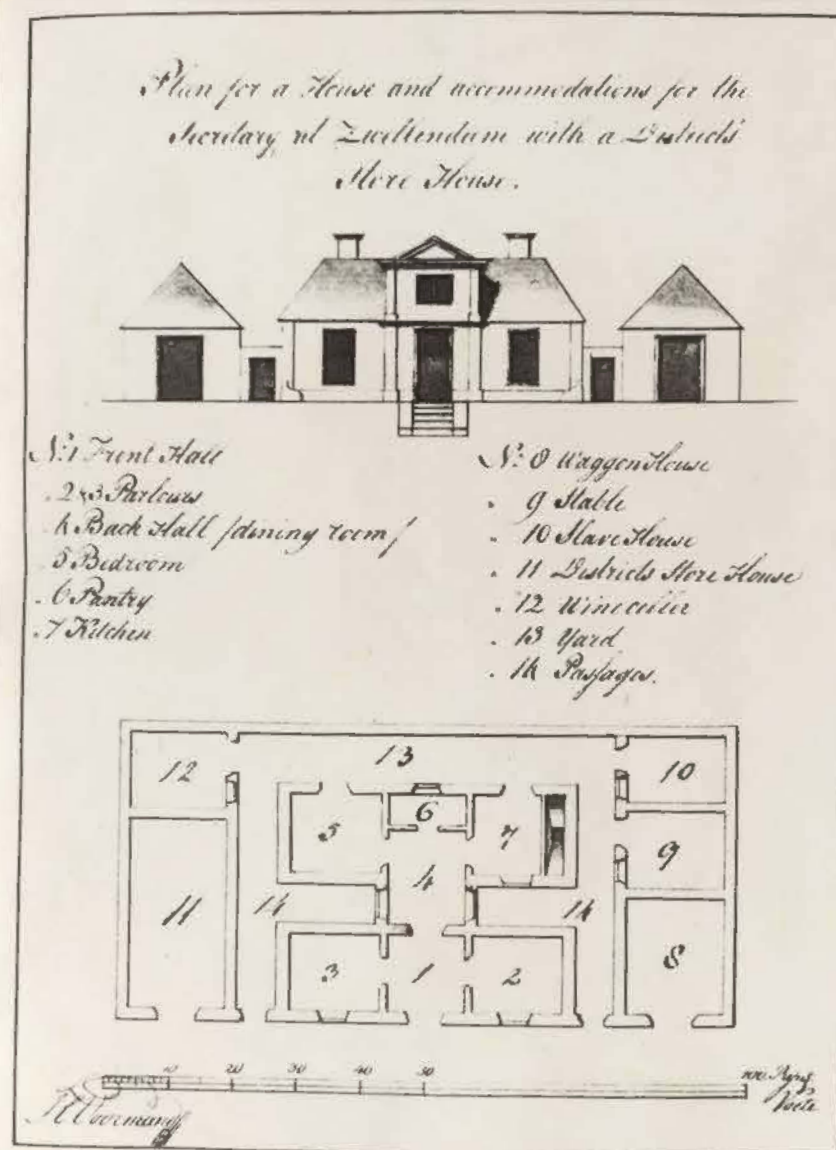 Plan for a House and accommodations for the
Secretary at Zwellendam with a Districts
Store House.
No: 1 Front Hall
" 2 & 3 Parlours
" 4 Back Hall /dining room/
" 5 Bedroom
" 6 Pantry
" 7 Kitchen
No: 8 Waggon House
" 9 Stable
" 10 Slave House
" 11 Districts Store House
" 12 Wine celler
" 13 Yard
" 14 Passages.
12 13 10
5 6 7 9
4
11 14 14
3 1 2 8
10 20 30 40 50 100 Rynl
Voete